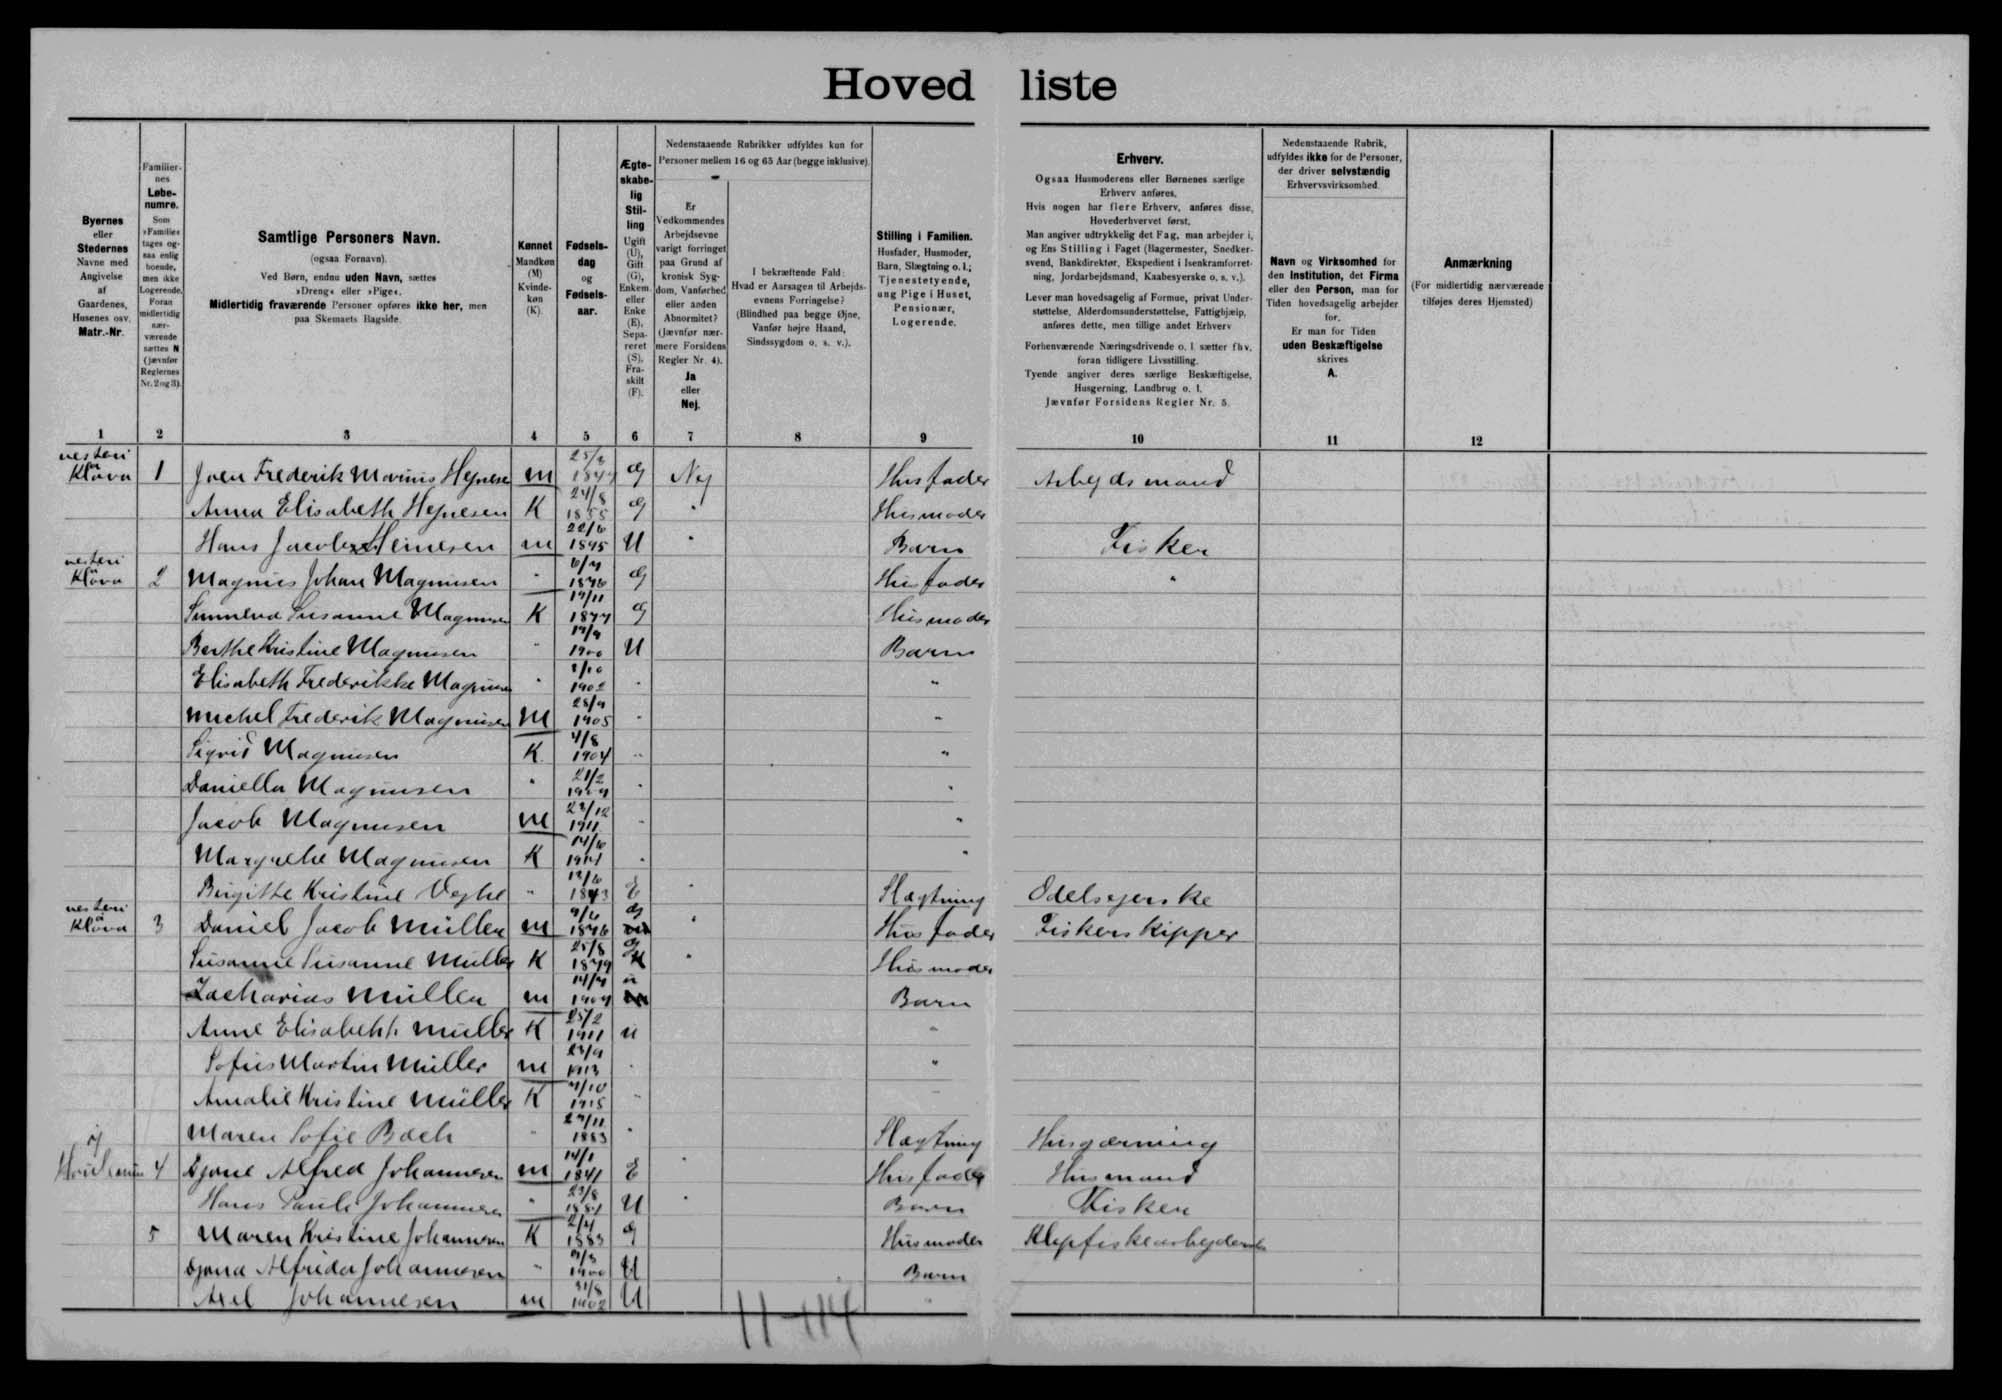 Hoved liste
Byernes
eller
Stedernes
Navne med
Angivelse
af
Gaardenes,
Husenes osv.
Matr.-Nr.
Familier-
nes
Løbe-
numre.
Som
»Familie«
tages og-
saa enlig
boende,
men ikke
Logerende.
Foran
midlertidig
nær-
værende
sættes N
(jævnfør
Reglernes
Nr. 2 og 3).
Samtlige Personers Navn.
(ogsaa Fornavn).
Ved Børn, endnu uden Navn, sættes
»Dreng« eller »Pige«.
Midlertidig fraværende Personer opføres ikke her, men
paa Skemaets Bagside.
Kønnet
Mandkøn
(M)
Kvinde-
køn
(K).
Fødsels-
dag
og
Fødsels-
aar.
Ægte-
skabe-
lig
Stil-
ling
Ugift
(U),
Gift
(G),
Enkem.
eller
Enke
(E),
Sepa-
reret
(S),
Fra-
skilt
(F).
Nedenstaaende Rubrikker udfyldes kun for
Personer mellem 16 og 65 Aar (begge inklusive).
Er
Vedkommendes
Arbejdsevne
varigt forringet
paa Grund af
kronisk Syg-
dom, Vanførhed
eller anden
Abnormitet?
(Jævnfør nær-
mere Forsidens
Regler Nr. 4).
Ja
eller
Nej.
I bekræftende Fald:
Hvad er Aarsagen til Arbejds-
evnens Forringelse?
(Blindhed paa begge Øjne,
Vanfør højre Haand,
Sindssygdom o. s. v.).
Stilling i Familien.
Husfader, Husmoder,
Barn, Slægtning o. l.;
Tjenestetyende,
ung Pige i Huset,
Pensionær,
Logerende.
Erhverv.
Ogsaa Husmoderens eller Børnenes særlige
Erhverv anføres.
Hvis nogen har flere Erhverv, anføres disse,
Hovederhvervet først.
Man angiver udtrykkelig det Fag, man arbejder i,
og Ens Stilling i Faget (Bagermester, Snedker-
svend, Bankdirektør, Ekspedient i Isenkramforret-
ning, Jordarbejdsmand, Kaabesyerske o. s. v.).
Lever man hovedsagelig af Formue, privat Under-
støttelse, Alderdomsunderstøttelse, Fattighjælp,
anføres dette, men tillige andet Erhverv
Forhenværende Næringsdrivende o. l. sætter fhv.
foran tidligere Livsstilling.
Tyende angiver deres særlige Beskæftigelse,
Husgerning, Landbrug o. l.
Jævnfør Forsidens Regler Nr. 5.
Nedenstaaende Rubrik,
udfyldes ikke for de Personer,
der driver selvstændig
Erhvervsvirksomhed.
Navn og Virksomhed for
den Institution, det Firma
eller den Person, man for
Tiden hovedsagelig arbejder
for.
Er man for Tiden
uden Beskæftigelse
skrives
A.
Anmærkning
(For midlertidig nærværende
tilføjes deres Hjemsted)
1 2 3 4 5 6 7 8 9 10 11 12
1 Frederik Marius Hejnesen M G Nej Husfader Arbejdsmand
Anna Elisabeth Hejnesen K 24/8 1855 G " Husmoder
Hans Jacob Heinesen M 22/6 1895 U " Barn Fisker
2 Magnus Johan Magnusen " 1876 G Husfader "
Susanne Magnusen K 19/11 1877 G Husmoder
Berthe Kristine Magnusen " 1900 U Barn
Elisabeth Frederikke Magnusen " 1902 " "
Michel Frederik Magnusen M 1905 " "
Sigrid Magnusen K 4/8 1904 " "
Daniella Magnusen " 21/2 1909 " "
Jacob Magnusen M 1911 " "
Margrethe Magnusen K " "
Birgitte Kristine " 1843 E " Slægtning Odelsejerske
3 Daniel Jacob Müller M 1876 G " Husfader Fiskerskipper
Susanne Susanne Müller K 25/8 1879 G " Husmoder
Zacharias Müller M 1909 u Barn
Anne Elisabeth Müller K 25/2 1911 u "
Sofus Martin Müller M 1913 " "
Amalie Kristine Müller K 1915 "
Maren Sofie Bæch " 1883 " Slægtning Husgærning
4 Alfred Johannesen M 14/1 1841 E " Husfader Husmand
Hans Pauli Johannesen " U " Barn Fisker
5 Maren Kristine Johannesen K 1883 G Husmoder
Alfrida Johannesen " 1900 U Barn
Axel Johannesen M 1902 U "
11-114